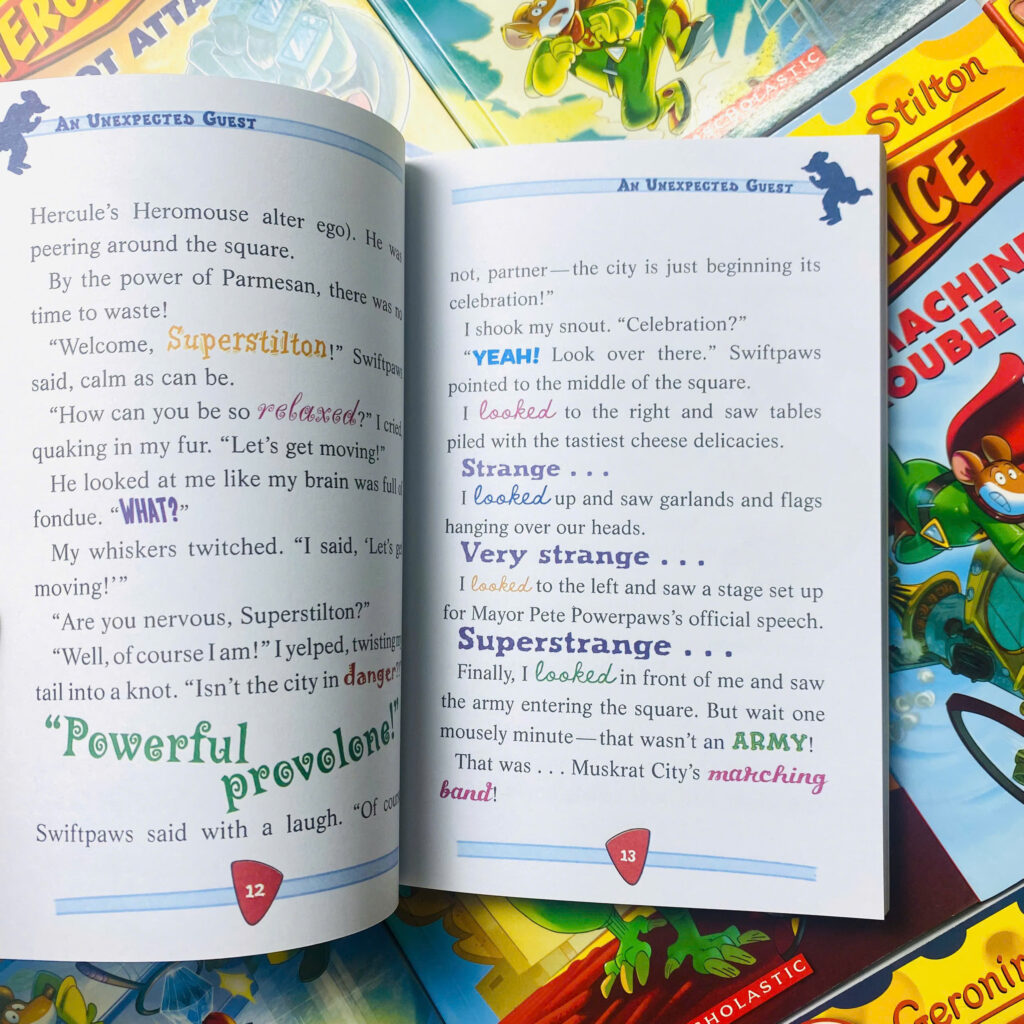 OT ATTA
SCHOLASTIC
Stilton
ICE
MACHINE
OUBLE
An Unexpected Guest
Hercule's Heromouse alter ego). He was
peering around the square.
By the power of Parmesan, there was no
time to waste!
"Welcome, Superstilton!" Swiftpaws
said, calm as can be.
"How can you be so relaxed?" I cried,
quaking in my fur. "Let's get moving!"
He looked at me like my brain was full of
fondue. "WHAT?"
My whiskers twitched. "I said, 'Let's get
moving!'"
"Are you nervous, Superstilton?"
"Well, of course I am!" I yelped, twisting my
tail into a knot. "Isn't the city in danger?"
"Powerful
provolone!"
Swiftpaws said with a laugh. "Of cour
12
An Unexpected Guest
not, partner—the city is just beginning its
celebration!"
I shook my snout. "Celebration?"
"YEAH! Look over there." Swiftpaws
pointed to the middle of the square.
I looked to the right and saw tables
piled with the tastiest cheese delicacies.
Strange . . .
I looked up and saw garlands and flags
hanging over our heads.
Very strange . . .
I looked to the left and saw a stage set up
for Mayor Pete Powerpaws's official speech.
Superstrange . . .
Finally, I looked in front of me and saw
the army entering the square. But wait one
mousely minute—that wasn't an ARMY!
That was . . . Muskrat City's marching
band!
13
CHOLASTIC
Geronim